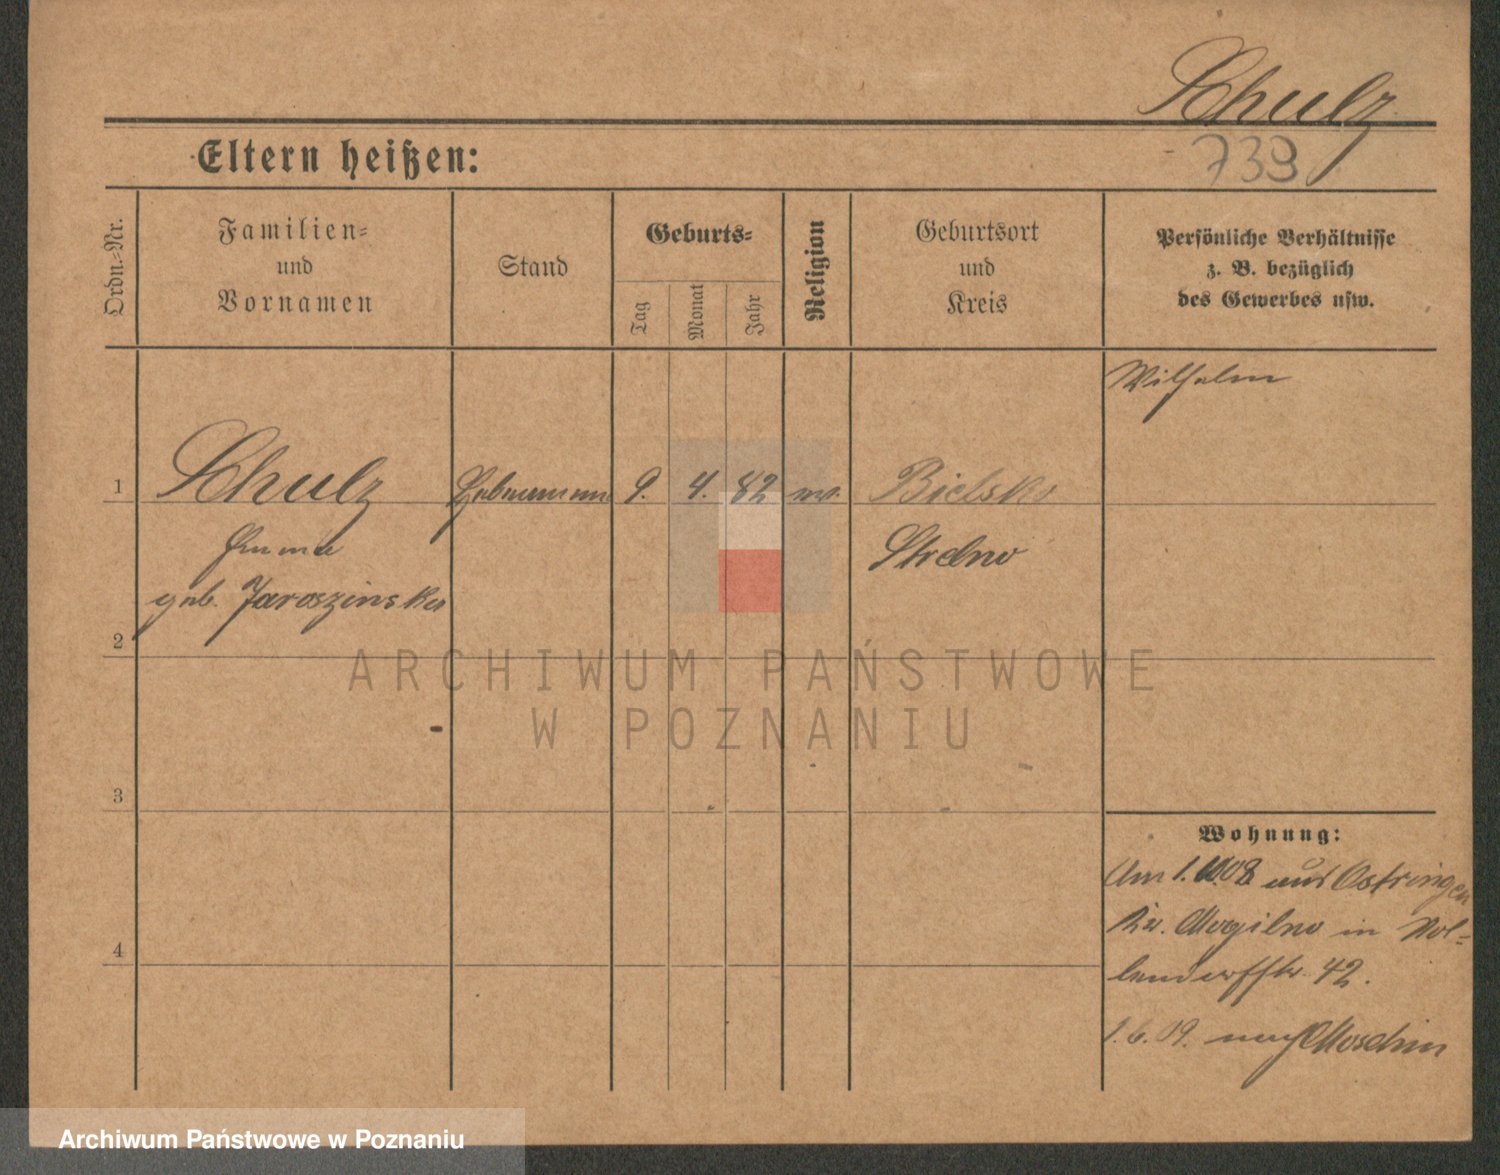 Schulz
739
Eltern heißen:
Ordn.-Nr.
Familien-
und
Vornamen
Stand
Geburts-
Tag
Monat
Jahr
Religion
Geburtsort
und
Kreis
Persönliche Verhältnisse
z. B. bezüglich
des Gewerbes usw.
Wilhelm
1
Schulz
Hebamme
9.
4.
82
ev.
Bielsko
Emma
Strelno
geb. Jaroszinska
2
ARCHIWUM PAŃSTWOWE
W POZNANIU
3
Wohnung:
Am 1. 08 aus Ostringen
Kr. Mogilno in Nol-
lendorffstr. 42.
4
1.6.09. nach Moschin
Archiwum Państwowe w Poznaniu